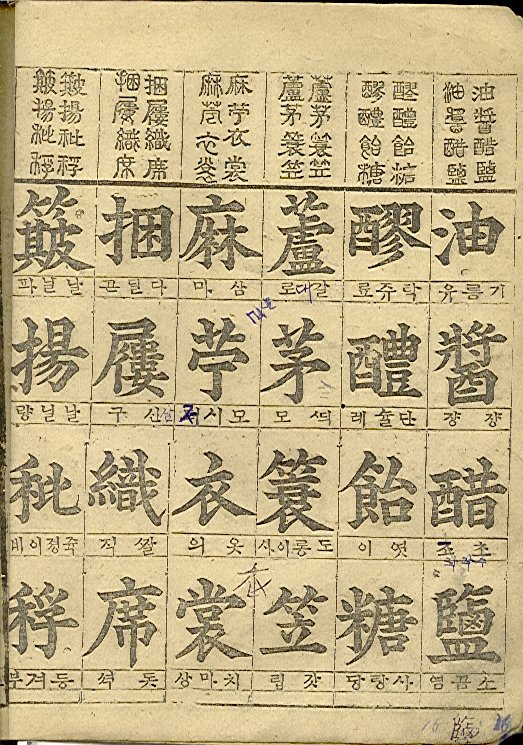 油醬醋鹽
油醬醋鹽
醪醴飴糖
醪醴飴糖
蘆茅蓑笠
蘆茅蓑笠
麻苧衣裳
麻苧衣裳
捆屨織席
捆屨織席
簸揚秕稃
簸揚秕稃
油
기름유
醬
쟝쟝
醋
초
鹽
소곰염
醪
탁쥬료
醴
단술례
飴
엿이
糖
사탕당
蘆
갈대로
茅
모
蓑
도롱이사
笠
갓립
麻
삼마
苧
모시저
衣
옷의
衣
裳
치마상
捆
屨
신구
織
짤직
席
돗석
簸
날닐파
揚
날닐량
秕
죽졍이비
稃
등겨부